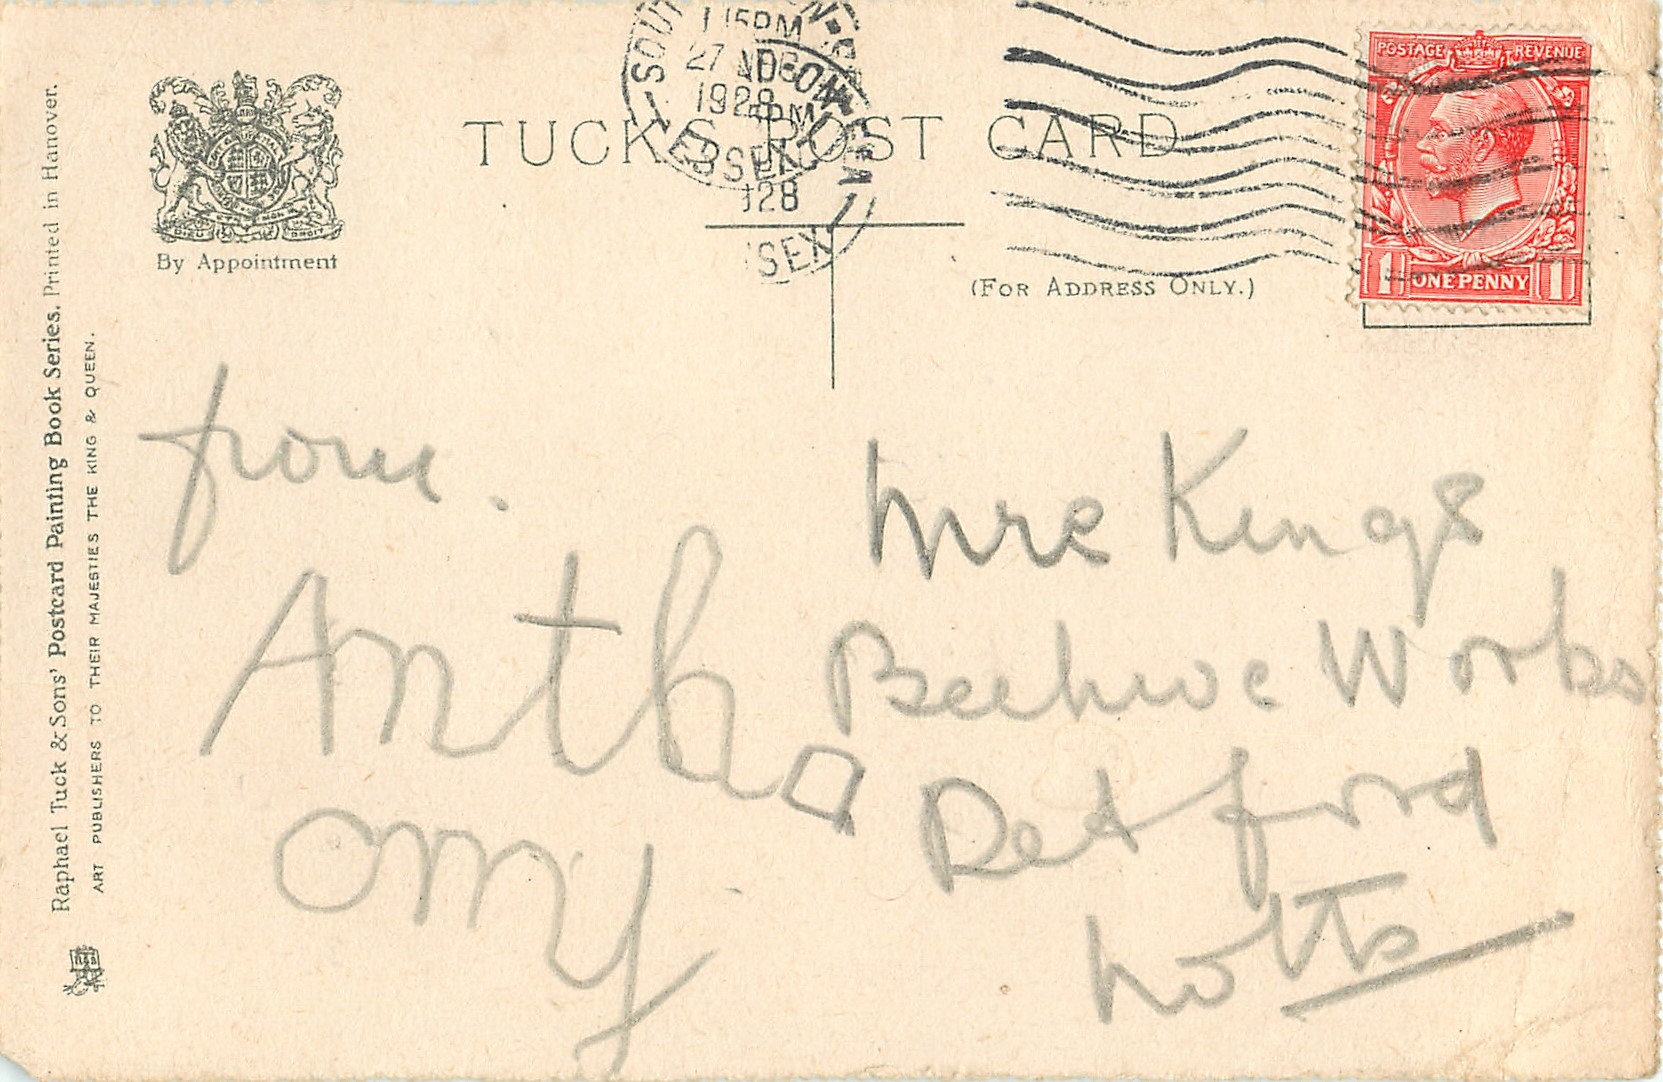 TUCK'S POST CARD
By Appointment
(FOR ADDRESS ONLY.)
POSTAGE REVENUE
1 ONE PENNY 1
1 15 PM
27
1928
ESSEX
Raphael Tuck & Sons' Postcard Painting Book Series. Printed in Hanover.
ART PUBLISHERS TO THEIR MAJESTIES THE KING & QUEEN.
from.
Antho
ony
Mrs Kings
Beehive Works
Retford
Notts